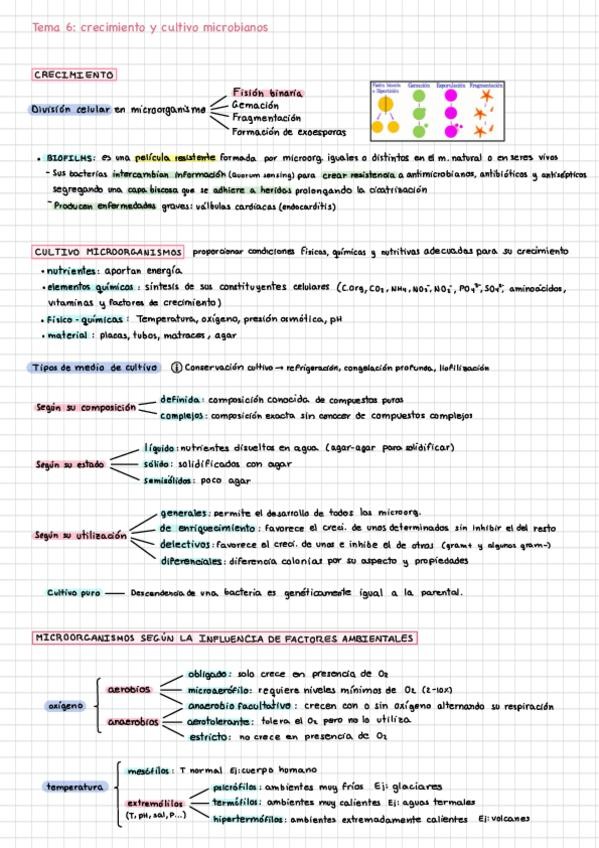 Tema 6: crecimiento y cultivo microbianos
CRECIMIENTO
División celular en microorganismo
Fisión binaria
Gemación
Fragmentación
Formación de exoesporas
Gemación Esporulación Fragmentación
• BIOFILMS: es una película resistente formada por microorg. iguales o distintos en el m. natural o en seres vivos
- Sus bacterias intercambian información (quorum sensing) para crear resistencia a antimicrobianos, antibióticos y antisépticos
segregando una capa biscosa que se adhiere a heridas prolongando la cicatrización
- Producen enfermedades graves: válbulas cardíacas (endocarditis)
CULTIVO MICROORGANISMOS proporcionar condiciones físicas, químicas y nutritivas adecuadas para su crecimiento
• nutrientes: aportan energía
• elementos químicos: síntesis de sus constituyentes celulares (C.org, CO₂, NH₄, NO₃⁻, NO₂⁻, aminoácidos,
vitaminas y factores de crecimiento)
• Físico-químicas: Temperatura, oxígeno, presión osmótica, pH
• material: placas, tubos, matraces, agar
Tipos de medio de cultivo ⓘ Conservación cultivo → refrigeración, congelación profunda, liofilización
Según su composición
definida: composición conocida de compuestos puros
complejos: composición exacta sin conocer de compuestos complejos
Según su estado
líquido: nutrientes disueltos en agua. (agar-agar para solidificar)
sólido: solidificados con agar
semisólidos: poco agar
Según su utilización
generales: permite el desarrollo de todos los microorg.
de enriquecimiento: favorece el creci. de unos determinados sin inhibir el del resto
delectivos: favorece el creci. de unos e inhibe el de otros (gram+ y algunos gram-)
diferenciales: diferencia colonias por su aspecto y propiedades
Cultivo puro — Descendencia de una bacteria es genéticamente igual a la parental.
MICROORGANISMOS SEGÚN LA INFLUENCIA DE FACTORES AMBIENTALES
oxígeno
aerobios
obligado: solo crece en presencia de O₂
microaerófilo: requiere niveles mínimos de O₂ (2-10%)
anaerobio facultativo: crecen con o sin oxígeno alternando su respiración
anaerobios
aerotolerante: tolera el O₂ pero no lo utiliza
estricto: no crece en presencia de O₂
temperatura
mesófilos: T normal Ej: cuerpo humano
extremófilos
(T, pH, sal, P...)
psicrófilos: ambientes muy fríos Ej: glaciares
termófilos: ambientes muy calientes Ej: aguas termales
hipertermófilos: ambientes extremadamente calientes Ej: volcanes